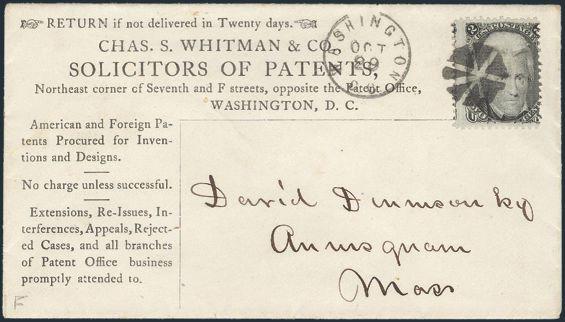 RETURN if not delivered in Twenty days.
CHAS. S. WHITMAN & CO.
SOLICITORS OF PATENTS,
Northeast corner of Seventh and F streets, opposite the Patent Office,
WASHINGTON, D. C.
WASHINGTON
OCT
29
D.C.
2
American and Foreign Pa-
tents Procured for Inven-
tions and Designs.
No charge unless successful.
Extensions, Re-Issues, In-
terferences, Appeals, Reject-
ed Cases, and all branches
of Patent Office business
promptly attended to.
David Dinmson Esq
Annisquam
Mass
F